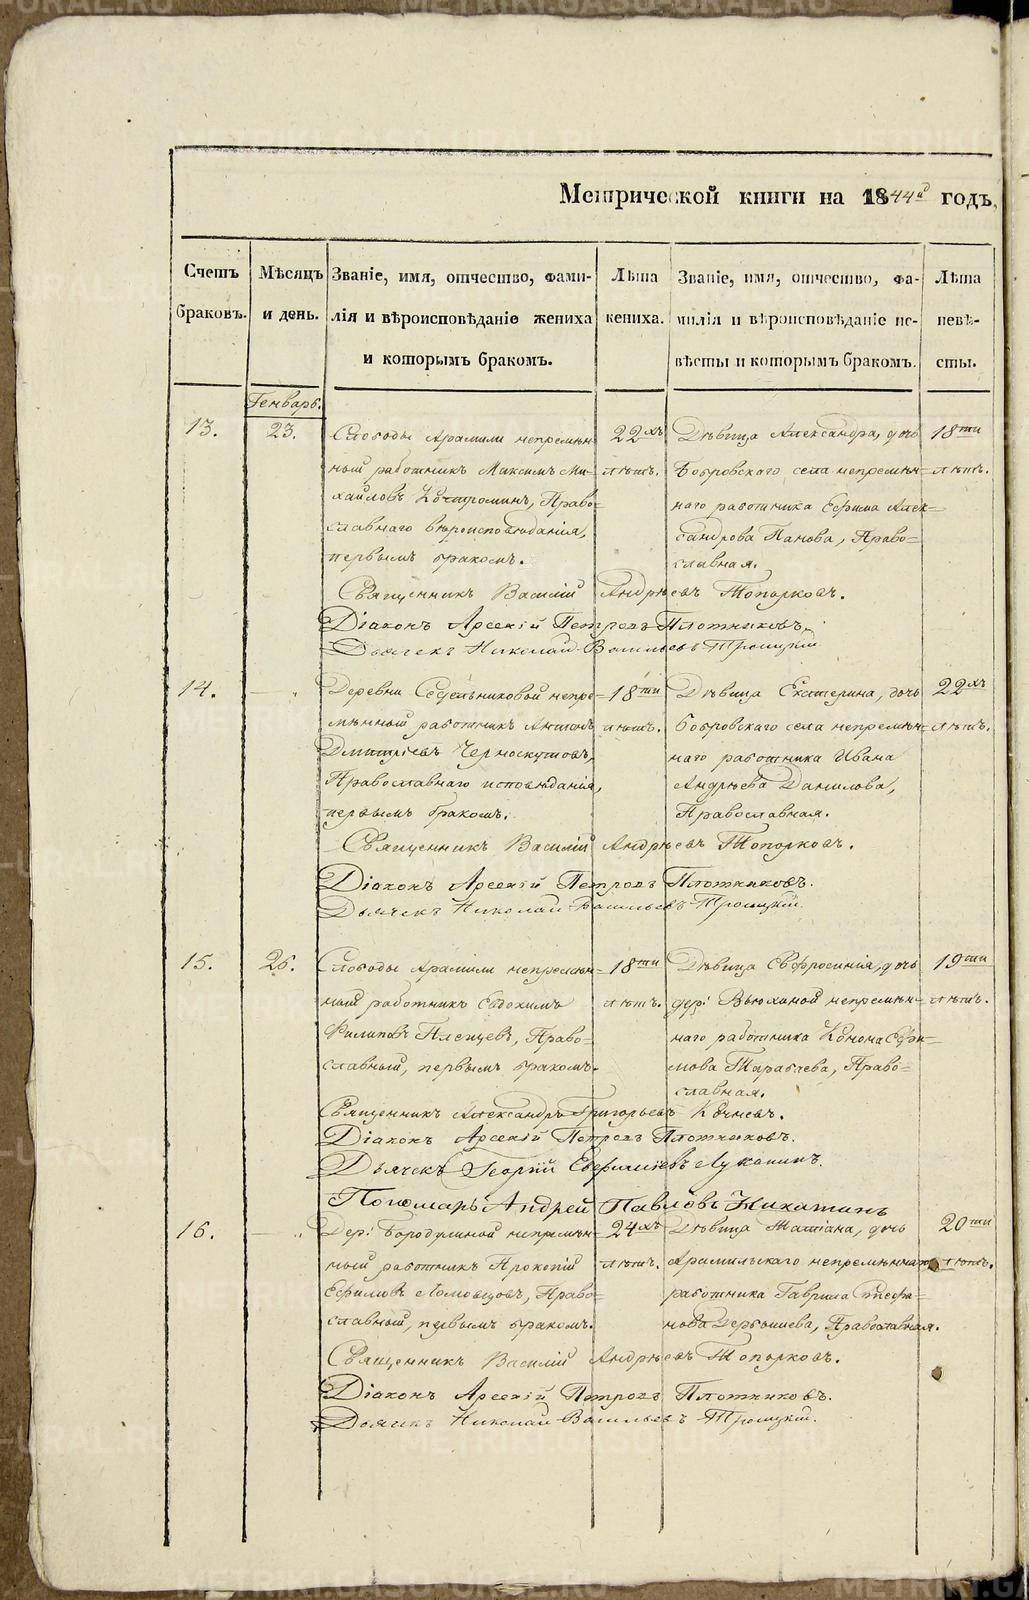 Метрической книги на 1844й годъ,
Счетъ браковъ.
Мѣсяцъ и день.
Званіе, имя, отчество, фами-
лія и вѣроисповѣданіе жениха
и которымъ бракомъ.
Лѣта
жениха.
Званіе, имя, отчество, фа-
милія и вѣроисповѣданіе не-
вѣсты и которымъ бракомъ.
Лѣта
невѣ-
сты.
Генварь.
13.
23.
Слободы Арамили непремѣн-
ный работникъ Максимъ Ми-
хайловъ Костроминъ, Право-
славнаго вѣроисповѣданія,
первымъ бракомъ.
22хъ
лѣтъ.
Дѣвица Александра, дочь
Бобровскаго села непремѣн-
наго работника Ефима Алек-
сандрова Панова, Право-
славная.
18ти
лѣтъ.
Священникъ Василій Андрѣевъ Топорковъ.
Діаконъ Арсеній Петровъ Плотниковъ.
Дьячекъ Николай Васильевъ Троицкій
14.
Деревни Седельниковой непре-
мѣнный работникъ Антонъ
Дмитріевъ Черноскутовъ,
Православнаго исповѣданія,
первымъ бракомъ.
18ти
лѣтъ.
Дѣвица Екатерина, дочь
Бобровскаго села непремѣн-
наго работника Ивана
Андрѣева Данилова,
Православная.
22хъ
лѣтъ.
Священникъ Василій Андрѣевъ Топорковъ.
Діаконъ Арсеній Петровъ Плотниковъ.
Дьячекъ Николай Васильевъ Троицкій.
15.
26.
Слободы Арамили непремѣн-
ный работникъ Евдокимъ
Филиповъ Пленцевъ, Право-
славный, первымъ бракомъ.
18ти
лѣтъ.
Дѣвица Евфросинія, дочь
дер: Вьюхиной непремѣн-
наго работника Конона Ефи-
мова Тарабаева, Право-
славная.
19ти
лѣтъ.
Священникъ Александръ Григорьевъ Кочневъ.
Діаконъ Арсеній Петровъ Плотниковъ.
Дьячекъ Георгій Евфиміевъ Луканинъ.
Пономарь Андрей Павловъ Никитинъ
16.
Дер: Бородулиной непремѣн-
ный работникъ Прокопій
Ефимовъ Ломовцовъ, Право-
славный, первымъ бракомъ.
24хъ
лѣтъ.
Дѣвица Татіана, дочь
Арамильскаго непремѣннаго
работника Гаврила Тиофа-
нова Дербышева, Православная.
20ти
лѣтъ.
Священникъ Василій Андрѣевъ Топорковъ.
Діаконъ Арсеній Петровъ Плотниковъ.
Дьячекъ Николай Васильевъ Троицкій.
METRIKI.GASO-URAL.RU